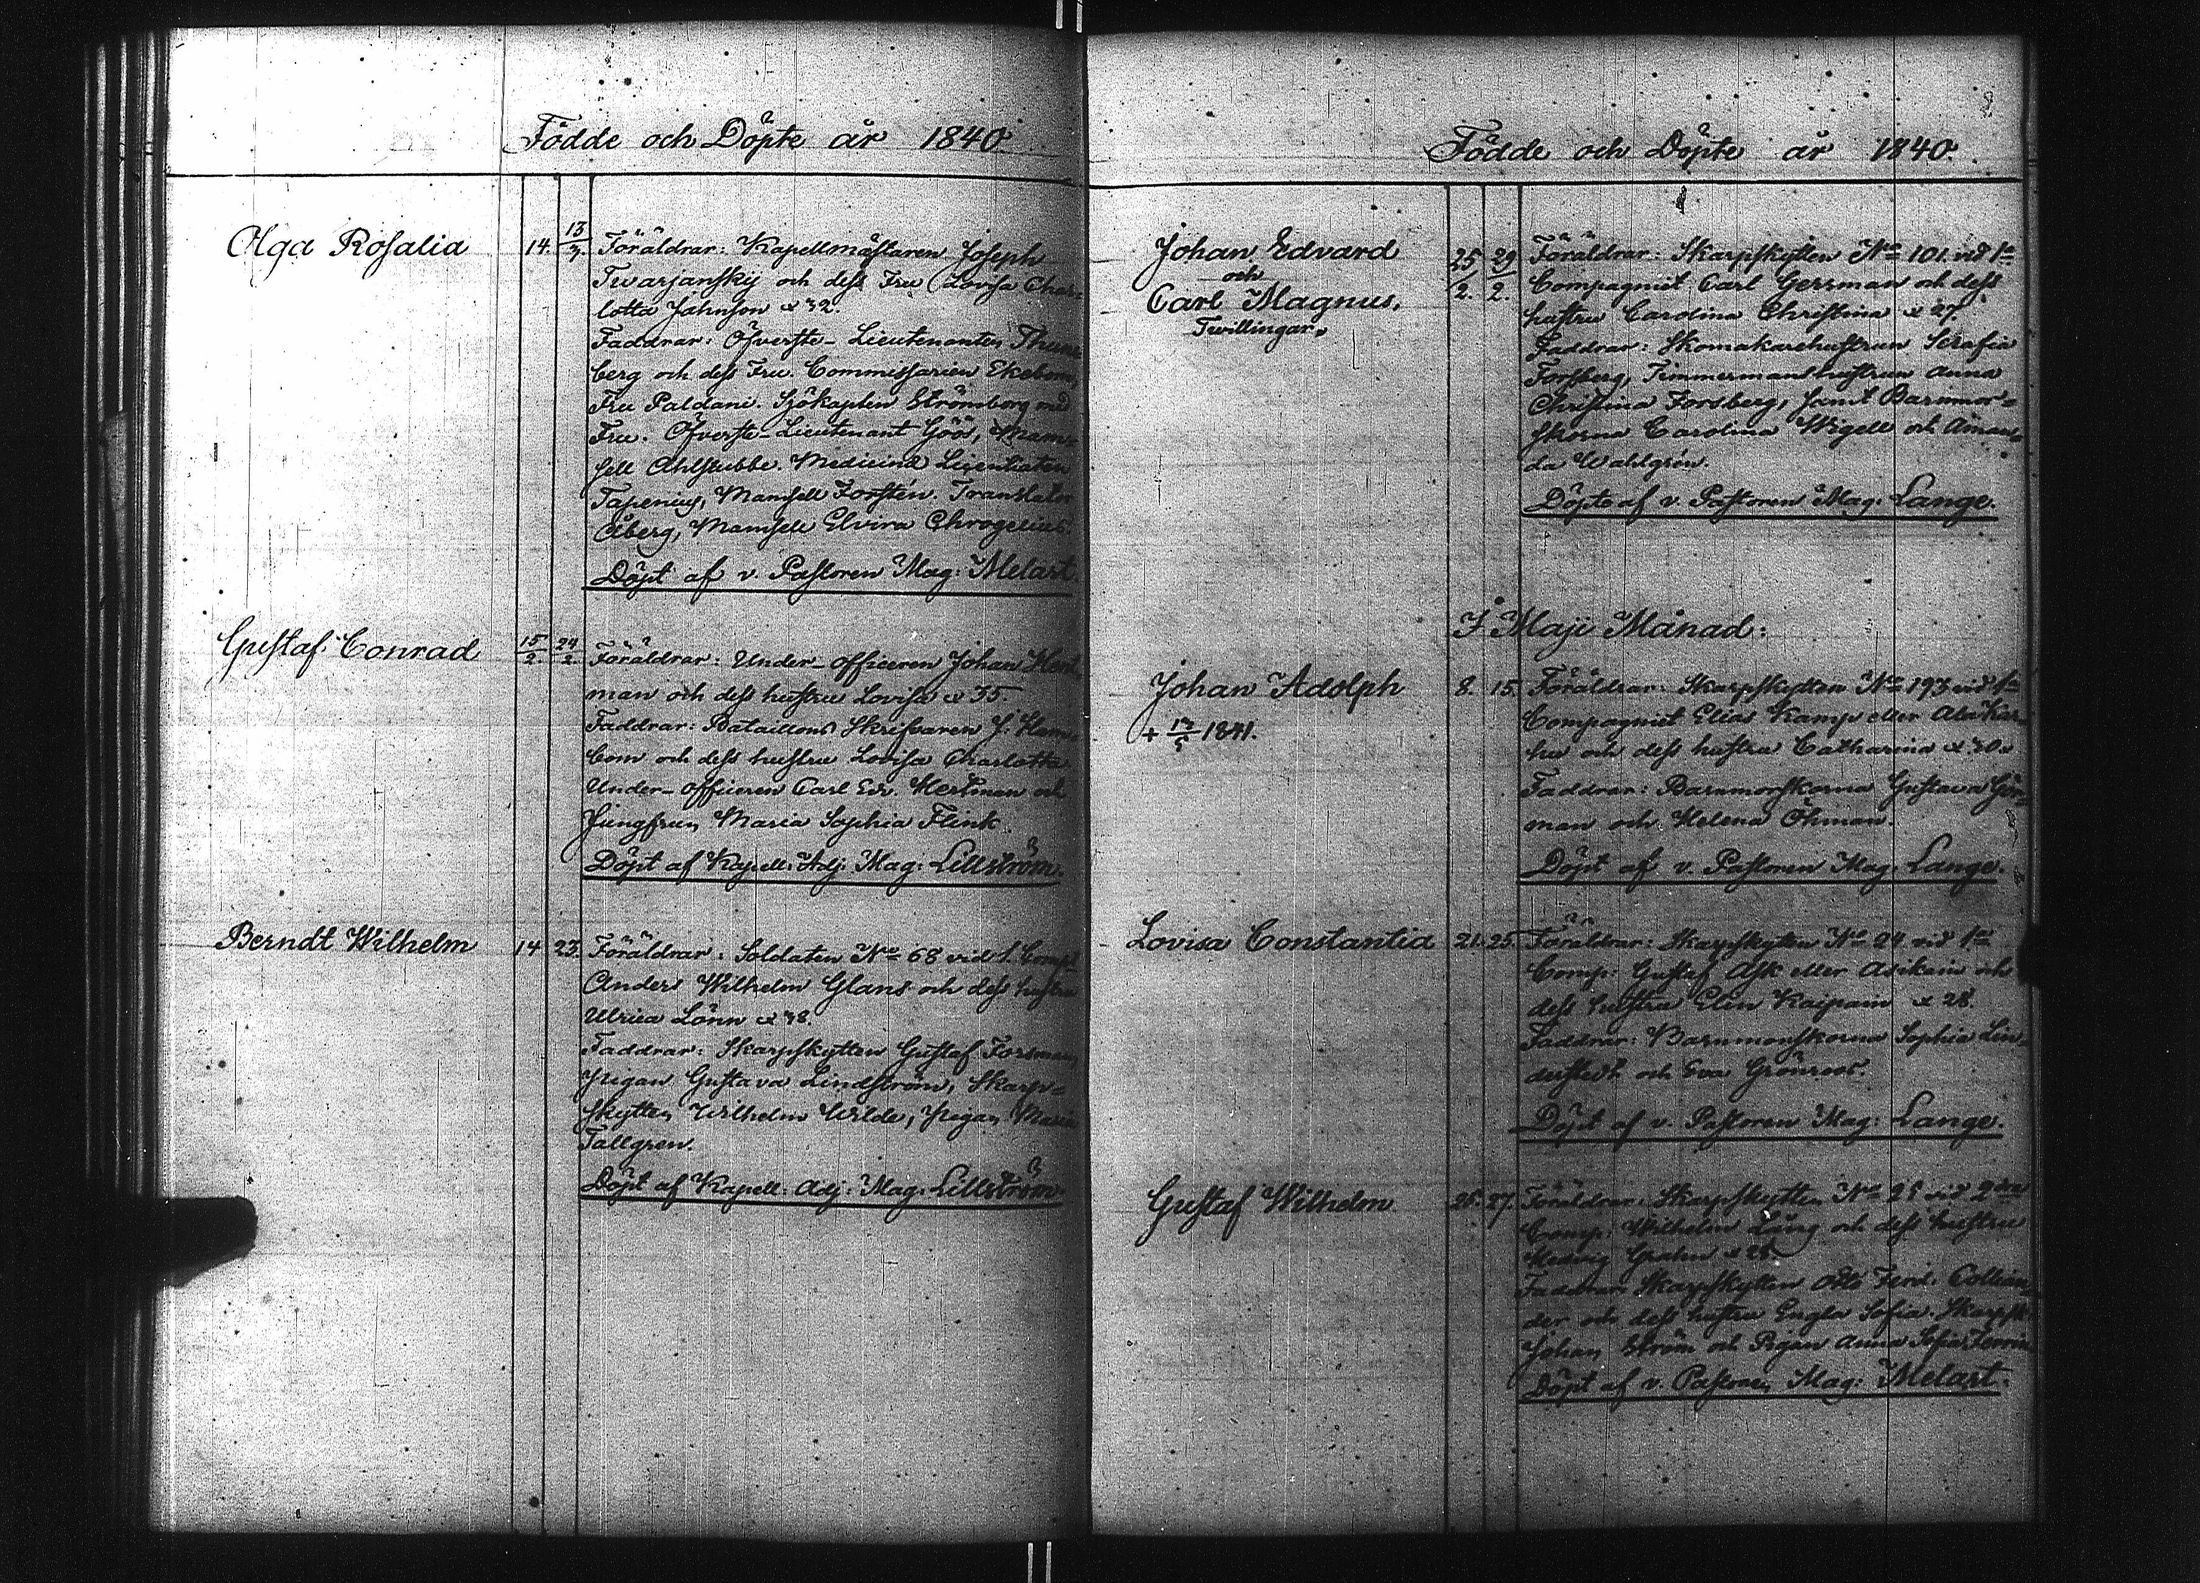 Födde och Döpte år 1840.
Olga Rosalia 14. 13/3. Föräldrar: Kapellmästaren Joseph
Twarjansky och dess Fru Lovisa Char=
lotta Johnson æ 32.
Faddrar: Öfverste-Lieutenanten Thune
berg och dess Fru. Commissarien Ekebom,
Fru Paldani. Sjökapten Strömborg med
Fru. Öfverste-Lieutenant Göös, Mam=
sell Ahlstubbe. Medicinä Licentiaten
Tapenius, Mamsell Forstén. Translator
Åberg, Mamsell Elvira Chrogelius.
Döpt af v. Pastoren Mag: Melart.
Gustaf Conrad 15/2. 24/2. Föräldrar: Under-officeren Johan
man och dess hustru Lovisa æ 35.
Faddrar: Bataillons Skrifvaren J.
bom och dess hustru Lovisa Charlotta
Under-officeren Carl Ed. Hertman och
Jungfrun Maria Sophia Flink.
Döpt af Kapell: Adj: Mag: Lillström.
Berndt Wilhelm 14 23. Föräldrar: Soldaten No 68 vid 1. Comp.
Anders Wilhelm Glans och dess hustru
Ulrica Lönn æ 38.
Faddrar: Skarpskytten Gustaf Forsman,
Pigan Gustava Lindström, Skarp=
skytten Wilhelm Wilde, Pigan Maria
Tallgren.
Döpt af Kapell: Adj: Mag: Lillström.
Födde och Döpte år 1840.
Johan Edvard 25/2. 29/2. Föräldrar: Skarpskytten No 101. vid 1a
och
Carl Magnus, Compagniet Carl Gerrman och dess
Tvillingar. hustru Carolina Christina æ 27.
Faddrar: Skomakarehustrun Serafia
Forsberg, Timmermanshustrun Anna
Christina Forsberg, samt Barnmor=
skorna Carolina Wigell och Aman=
da Wahlgrén.
Döpte af v. Pastoren Mag: Lange.
I Maji Månad:
Johan Adolph 8. 15. Föräldrar: Skarpskytten No 193 vid 1a
+ 17/5 1841. Compagniet Elias Kamp eller
hu och dess hustru Catharina æ 30.
Faddrar: Barnmorskorna Gustava
man och Helena Öhman.
Döpt af v. Pastoren Mag: Lange.
Lovisa Constantia 21. 25. Föräldrar: Skarpskytten No 24 vid 1a
Comp: Gustaf Ask eller Asikain och
dess hustru Elin Kaipain æ 28.
Faddrar: Barnmorskorna Sophia Lin=
derstedt och Eva Grönroos.
Döpt af v. Pastoren Mag: Lange.
Gustaf Wilhelm 25. 27. Föräldrar: Skarpskytten No 21 vid 2dra
Comp: Wilhelm Ljung och dess hustru
Hedvig Grahn æ 28.
Faddrar: Skarpskytten Otto Ferd. Collian=
der och dess hustru Engla Sofia. Skarpsk:
Johan Ström och Pigan Anna Sofia
Döpt af v. Pastoren Mag: Melart.